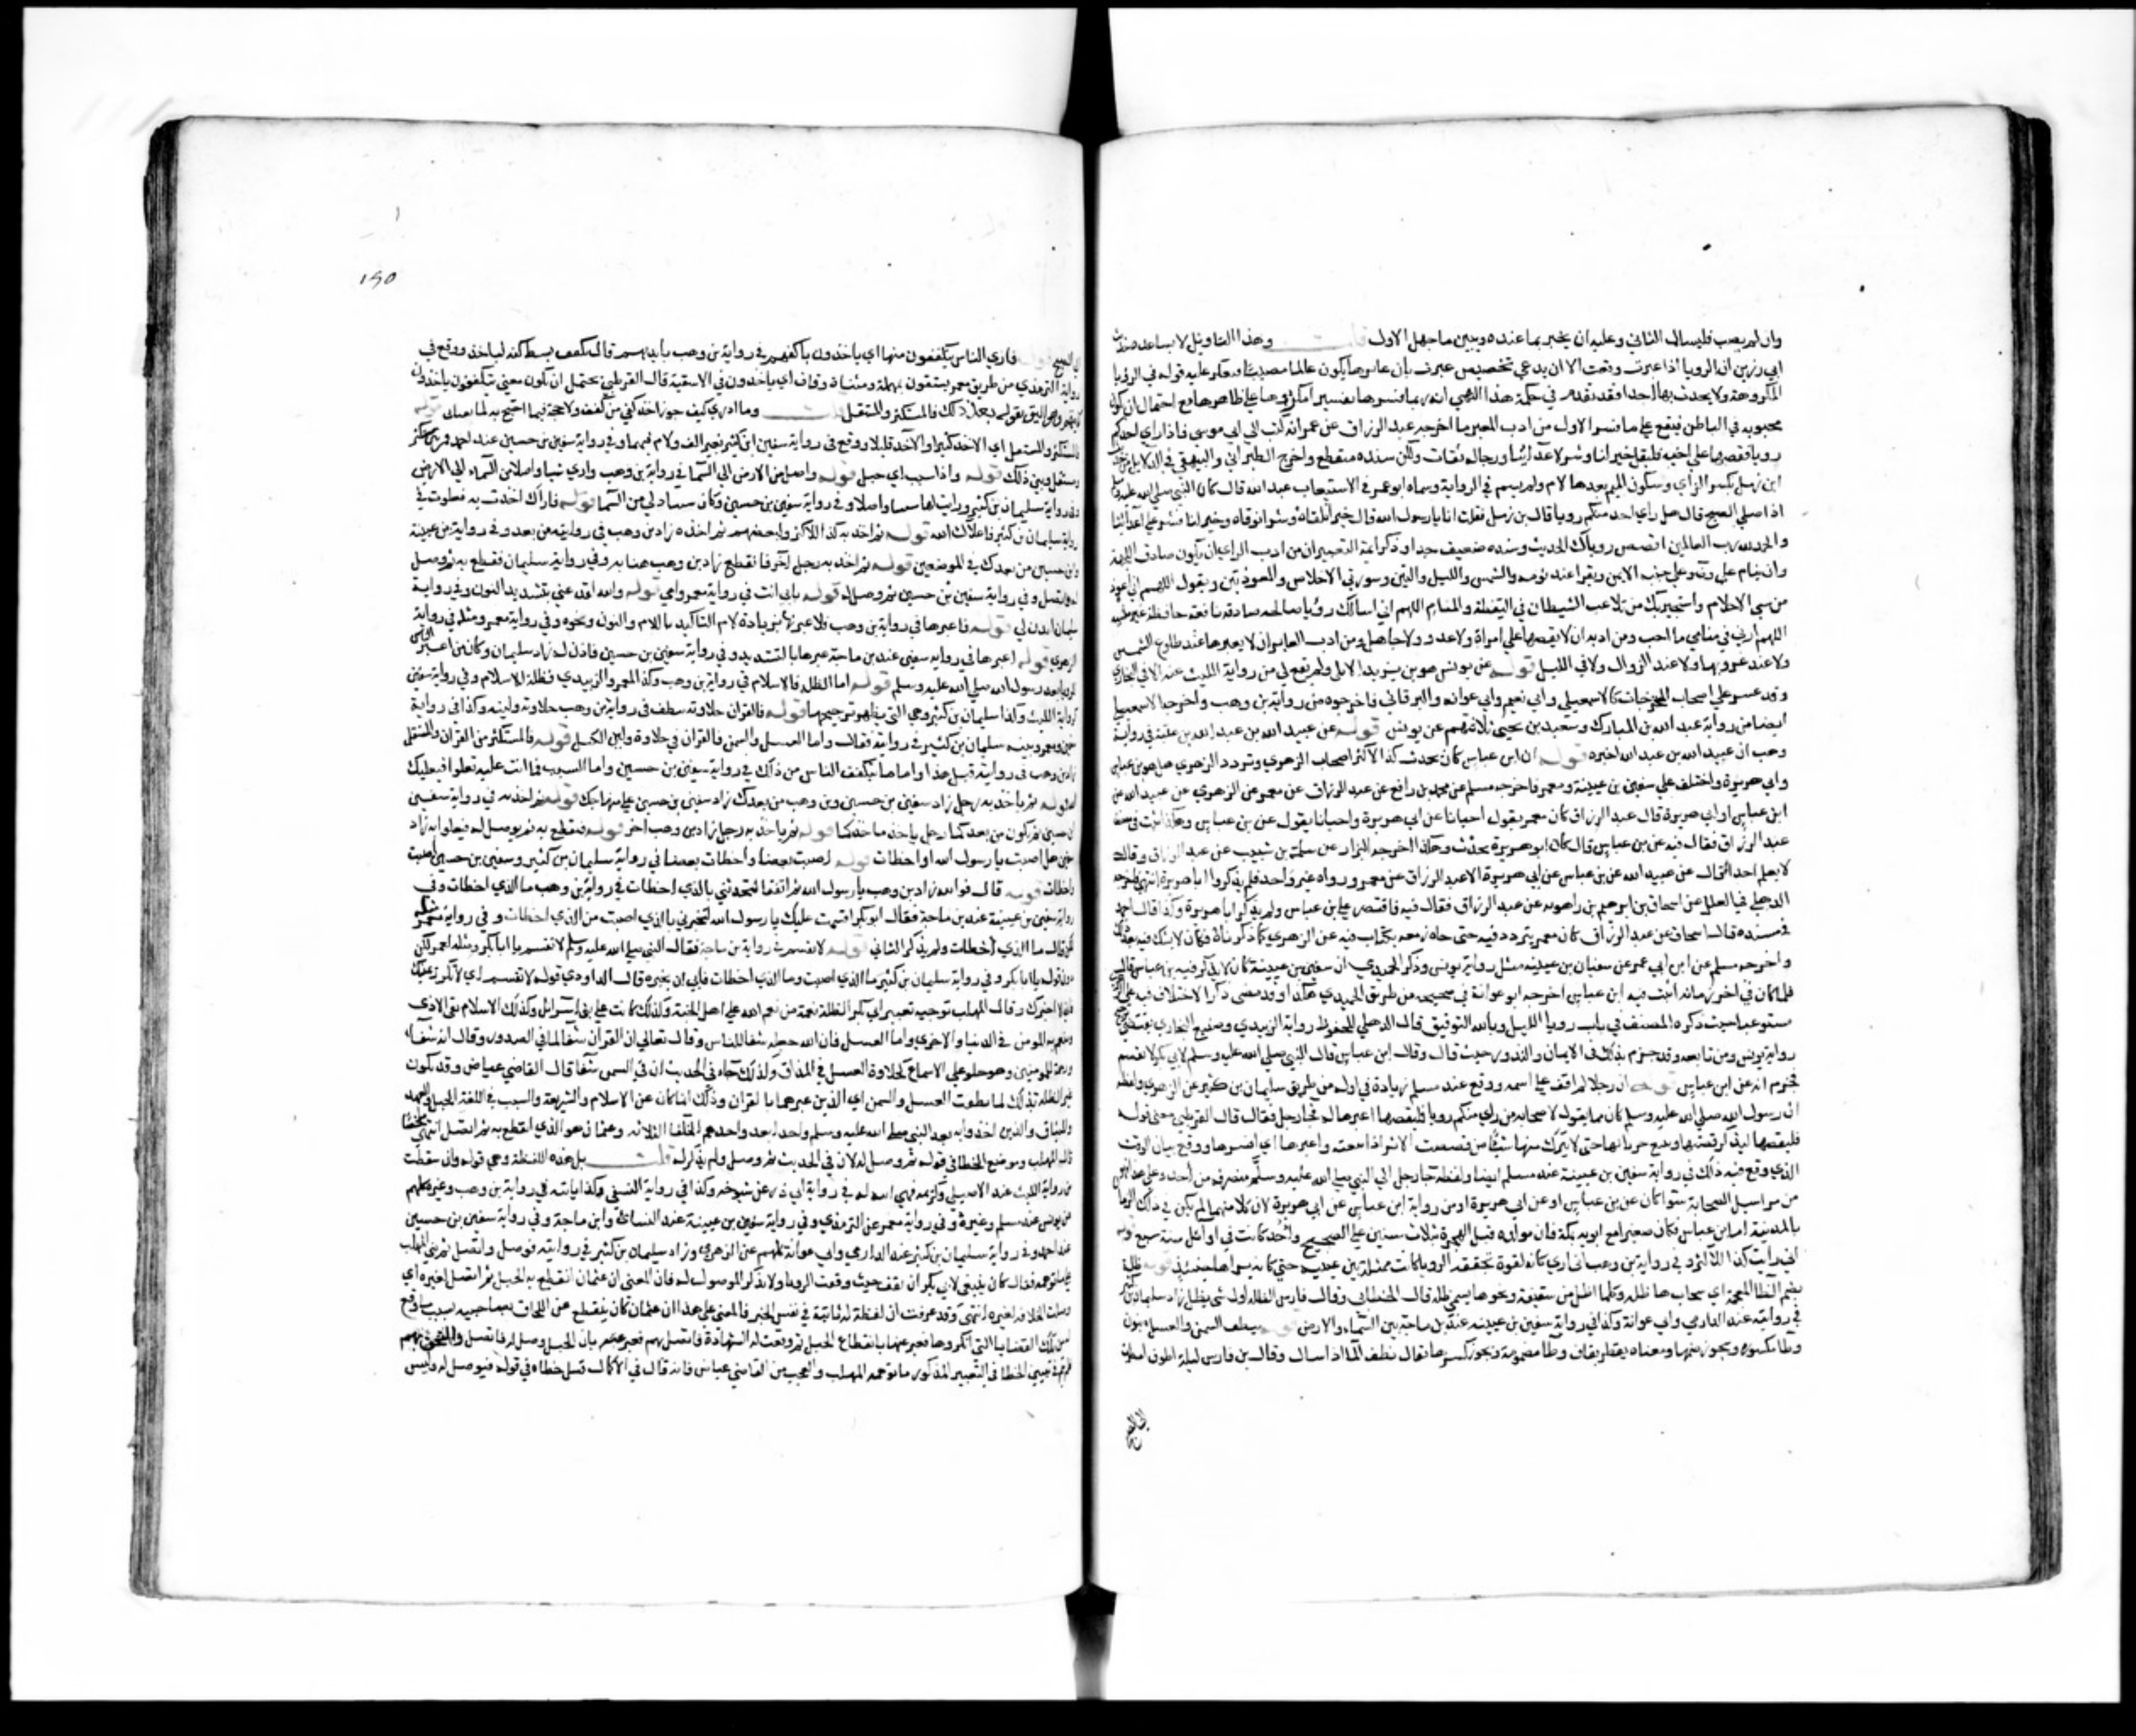 وان لم يصب فليسال الثاني وعليه ان يخبر بما عنده ويبين ما جهل الاول قلت وهذا التاويل لا يساعده حديث
ابي رزين ان الرويا اذا عبرت وقعت الا ان يدعي تخصيص عبرت بان عابرها يكون عالما مصيبا فيعكر عليه قوله في الرؤيا
المكروهة ولا يحدث بها احدا فقد تقدم في حكمة هذا النهي انه ربما فسرها تفسيرا مكروها على ظاهرها مع احتمال ان تكون
محبوبه في الباطن فيقع على ما فسر الاول من ادب المعبر ما اخرجه عبد الرزاق عن عمر انه كتب الي ابي موسى فاذا راي احدكم
رويا فقصها علي اخيه فليقل خير لنا وشر لاعدائنا ورجاله ثقات ولكن سنده منقطع واخرج الطبراني والبيهقي في الدلايل من حديث
ابن زمل بكسر الزاي وسكون الميم بعدها لام ولم يسم في الرواية وسماه ابو عمر في الاستيعاب عبد الله قال كان النبي صلى الله عليه وسلم
اذا صلي الصبح قال هل راي احد منكم رويا قال بن زمل فقلت انا يا رسول الله قال خير تلقاه وشر توقاه وخير لنا وشر على اعدائنا
والحمد لله رب العالمين اقصص روياك الحديث وسنده ضعيف جدا وذكر ايمة التعبير ان من ادب الراءي ان يكون صادق اللهجة
وان ينام علي وضوء علي جنبه الايمن ويقرا عند نومه والشمس والليل والتين وسورتي الاخلاص والمعوذتين ويقول اللهم اني اعوذ بك
من سي الاحلام واستجير بك من تلاعب الشيطان في اليقظة والمنام اللهم اني اسالك رؤيا صالحه صادقه نافعة حافظة غير منسية
اللهم ارني في منامي ما احب ومن ادبه ان لا يقصها علي امراة ولا عدو ولا جاهل ومن ادب العابر ان لا يعبرها عند طلوع الشمس
ولا عند غروبها ولا عند الزوال ولا في الليل قوله عن يونس هو بن يزيد الايلي ولم يقع لي من رواية الليث عنه الا في البخاري
وقد عسر علي اصحاب المستخرجات كالاسمعيلي وابي نعيم وابي عوانه والبرقاني فاخرجوه من رواية بن وهب واخرجه الاسمعيلي
ايضا من رواية عبد الله بن المبارك وسعيد بن يحيي ثلاثتهم عن يونس قوله عن عبيد الله بن عبد الله بن عتبة في رواية
وهب ان عبيد الله بن عبد الله اخبره قوله ان ابن عباس كان يحدث كذا لاكثر اصحاب الزهري وتردد الزهري هل هو بن عباس
وابي هريرة واختلف علي سفين بن عيينة ومعمر فاخرجه مسلم عن محمد بن رافع عن عبد الرزاق عن معمر عن الزهري عن عبيد الله عن
ابن عباس او ابي هريرة قال عبد الرزاق كان معمر يقول احيانا عن ابي هريرة واحيانا يقول عن بن عباس وهكذا ثبت في مصنف
عبد الرزاق فقال فيه عن بن عباس قال كان ابو هريرة يحدث وهكذا اخرجه البزار عن سلمة بن شبيب عن عبد الرزاق وقال
لا يعلم احدا قال عن عبيد الله عن بن عباس عن ابي هريرة الا عبد الرزاق عن معمر ورواه غير واحد فلم يذكروا ابا هريرة انتهي واخرجه
الذهلي في العلل عن اسحاق بن ابرهيم بن راهويه عن عبد الرزاق فقال فيه فاقتصر علي بن عباس ولم يذكر ابا هريرة وكذا قال احمد
في مسنده قال اسحاق عن عبد الرزاق كان معمر يتردد فيه حتى جاءه زمعه بكتاب فيه عن الزهري كما ذكرناه فكان لا يشك فيه بعد ذلك
واخرجه مسلم عن ابن ابي عمر عن سفيان بن عيينه مثل رواية يونس وذكر الحميدي ان سفين بن عيينة كان لا يذكر فيه بن عباس قال
فلما كان في اخر زمانه اثبت فيه ابن عباس اخرجه ابو عوانة في صحيحه من طريق الحميدي هكذا وقد مضى ذكر الاختلاف فيه على الزهري
مستوعبا حيث ذكره المصنف في باب رويا الليل وبالله التوفيق قال الذهلي المحفوظ رواية الزبيدي وصنيع البخاري يقتضي ترجيح
رواية يونس ومن تابعه وقد جزم بذلك في الايمان والنذور حيث قال وقال ابن عباس قال النبي صلي الله عليه وسلم لابي بكر لا تقسم
فجزم انه عن ابن عباس قوله ان رجلا لم اقف علي اسمه ووقع عند مسلم زيادة في اوله من طريق سليمان بن كثير عن الزهري ولفظه
ان رسول الله صلي الله عليه وسلم كان مما يقول لاصحابه من راي منكم رويا فليقصها اعبرها له فجا رجل فقال قال القرطبي معنى قوله
فليقصها ليذكر قصتها ويتبع جزءياتها حتى لا يترك منها شيئا من قصصت الاثر اذا اتبعته واعبرها اي افسرها ووقع بيان الوقت
الذي وقع فيه ذلك في رواية سفين بن عيينة عند مسلم ايضا ولفظه جا رجل الي النبي صلي الله عليه وسلم منصرفه من احد وعلى هذا فهو
من مراسيل الصحابة سوا كان عن بن عباس او عن ابي هريرة او من رواية ابن عباس عن ابي هريرة لان كلا منهما لم يكن في ذلك الزمان
بالمدينة اما بن عباس فكان صغيرا مع ابويه بمكة فان مولده قبل الهجرة بثلاث سنين علي الصحيح واحد كانت في اوائل سنة
اني رايت كذا للاكثر وفي رواية بن وهب اني اري كانه لقوة تحققه الرويا كانت ممثلة بين عينيه حتى كانه يراها حينئذ قوله ظلة
بضم الظا المعجمة اي سحابه لها ظله وكلما اظل من سقيفة ونحوها يسمى ظله قال الخطابي وقال فارس الظله اول شي يظل زاد سليمان بن كثير
في روايته عند الدارمي وابي عوانة وكذا في رواية سفين بن عيينه عند بن ماجة بين السماء والارض قوله ينطف السمن والعسل بنون
وطا مكسوره ويجوز ضمها ومعناه يقطر بقاف وطا مضمومة ويجوز كسرها يقال نطف الما اذا سال وقال بن فارس ليلة نطوف امطرت
الي الصبح
190
الي الصبح قوله فاري الناس يتكففون منها اي ياخذون باكفهم في رواية بن وهب بايديهم قال بسط كفه لياخذ ووقع في
رواية الترمذي من طريق معمر يستقون بمهملة ومثناة وقاف اي ياخذون في الاسقية قال القرطبي يحتمل ان يكون معنى يتكففون ياخذون
اليق بقوله بعد ذلك فالمستكثر والمستقل قلت وما ادري كيف جوز اخذ كفى من كفف ولا حجة فيما احتج به لما سياتي قوله
فالمستكثر والمستقل اي الاخذ كثيرا والاخذ قليلا ووقع في رواية سليمن ابن كثير بغير الف ولام فيهما وفي رواية سفين بن حسين عند احمد فمن بين مستكثر
ومستقل وبين ذلك قوله واذا سبب اي حبل قوله واصل من الارض الي السما في رواية بن وهب واري سببا واصلا من السماء الي الارض
وفي رواية سليمان بن كثير ورايت لها سببا واصلا وفي رواية سفين بن حسين وكان سببا دلي من السما قوله فاراك اخذت به فعلوت في
رواية سليمان بن كثير فاعلاك الله قوله ثم اخذ به كذا للاكثر ولبعضهم ثم اخذه زاد بن وهب في روايته من بعد وفي رواية بن عيينة
وابن حسين من بعدك في الموضعين قوله ثم اخذ به رجل اخر فانقطع زاد بن وهب هنا به وفي رواية سليمان فقطع به ثم وصل
له فاتصل وفي رواية سفين بن حسين ثم وصل له قوله بابي انت في رواية معمر وامي قوله والله لتدعني بتشديد النون وفي رواية
سليمان ايذن لي قوله فاعبرها في رواية بن وهب فلاعبرنها بزيادة لام التاكيد باللام والنون ونحوه وفي رواية معمر ومثله في رواية
الزهري قوله اعبرها في رواية سفين عند بن ماجة عبرها بالتشديد وفي رواية سفين بن حسين فاذن له زاد سليمان وكان من اعبر الناس
للرويا بعد رسول الله صلي الله عليه وسلم قوله اما الظله فالاسلام في رواية بن وهب وكذا المعمر والزبيدي فظلة الاسلام وفي رواية سفين
كرواية الليث وكذا سليمان بن كثير وهي التي يظهر ترجيحها قوله فالقران حلاوته تنطف في رواية بن وهب حلاوته ولينه وكذا في رواية
سفين ومعمر وبينه سليمان بن كثير في روايته فقال واما العسل والسمن فالقران في حلاوة العسل ولين السمن قوله فالمستكثر من القران والمستقل
زاد بن وهب في روايته قبل هذا واما ما يتكفف الناس من ذلك في رواية سفين بن حسين واما السبب فما انت عليه تعلوا فيعليك
الله قوله ثم ياخذ به رجل زاد سفين بن حسين وبن وهب من بعدك زاد سفين بن حسين علي منهاجك قوله ثم اخذ به في رواية سفين
ابن حسين ثم يكون من بعدكما رجل ياخذ ماخذكما قوله ثم ياخذ به رجل زاد بن وهب اخر قوله فينقطع به ثم يوصل له فيعلوا به زاد
هل اصبت يا رسول الله او اخطات قوله اصبت بعضا واخطات بعضا في رواية سليمان بن كثير وسفين بن حسين اصبت
واخطات قوله قال فوالله زاد بن وهب يا رسول الله ثم اتفقا لتحدثني بالذي اخطات في رواية بن وهب ما الذي اخطات وفي
رواية سفين بن عيينة عند بن ماجة فقال ابو بكر اقسمت عليك يا رسول الله لتخبرني بالذي اصبت من الذي اخطات وفي رواية معمر
لكن قال ما الذي اخطات ولم يذكر الثاني قوله لا تقسم في رواية بن ماجة فقال النبي صلي الله عليه وسلم لا تقسم يا ابا بكر ومثله لمعمر لكن
دون قوله يا ابا بكر وفي رواية سليمان بن كثير ما الذي اصبت وما الذي اخطات فابي ان يخبره قال الداودي قوله لا تقسم اي لا تكرر يمينك
فاني لا اخبرك وقال المهلب توجيه تعبير ابي بكر الظلة نعمة من نعم الله علي اهل الجنة وكذلك كانت علي بني اسرائل وكذلك الاسلام يقي الاذى
وينعم به المومن في الدنيا والاخرى واما العسل فان الله جعله شفا للناس وقال تعالي ان القران شفا لما في الصدور وقال انه شفا
ورحمة للمومنين وهو حلو علي الاسماع كحلاوة العسل في المذاق ولذلك جاء في الحديث ان في السمن شفا قال القاضي عياض وقد يكون
عبر الظله بذلك لما نطفت العسل والسمن اي الذين عبرهما بالقران وذلك انما كان عن الاسلام والشريعة والسبب في اللغة الحبل والعهد
والميثاق والذين اخذوا به بعد النبي صلي الله عليه وسلم واحدا بعد واحد هم الخلفا الثلاثه وعثمان هو الذي انقطع به ثم اتصل انتهي ملخصا
قال المهلب وموضع الخطا في قوله ثم وصل له لان في الحديث ثم وصل ولم يذكر له قلت بل هذه اللفظة وهي قوله وان سقطت
من رواية الليث عند الاصيلي وكريمه فهي ثابته في رواية ابي ذر عن شيوخه وكذا في رواية النسفي وكذا ثابته في رواية بن وهب وغيره كلهم
عن يونس عند مسلم وغيره وفي رواية معمر عند الترمذي وفي رواية سفين بن عيينة عند النسائي وابن ماجة وفي رواية سفين بن حسين
عند احمد وفي رواية سليمان بن كثير عند الدارمي وابي عوانة كلهم عن الزهري وزاد سليمان بن كثير في روايته فوصل واتصل ثم بني المهلب
علي ما توهمه فقال كان ينبغي لابي بكر ان يقف حيث وقفت الرويا ولا يذكر الموصول له فان المعنى ان عثمان انقطع به الحبل ثم اتصل لغيره اي
وصلت الخلافة لغيره انتهي وقد عرفت ان لفظة له ثابتة في نفس الخبر فالمعنى علي هذا ان عثمان كان ينقطع عن اللحاق بصاحبيه بسبب ما وقع
من تلك القضايا التي انكروها فعبر عنها بانقطاع الحبل ثم وقعت له الشهادة فاتصل بهم فعبر عنه بان الحبل وصل له فاتصل والتحق بهم
فلم يتم في تبيين الخطا في التعبير المذكور ما توهمه المهلب والعجب من القاضي عياض فانه قال في الاكمال قيل خطاه في قوله فيوصل له وليس